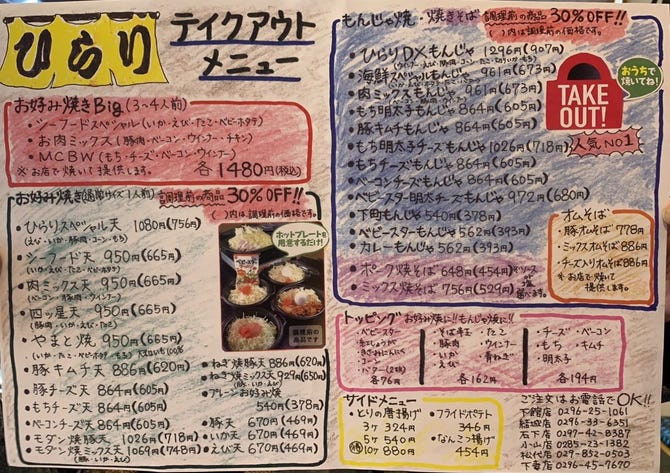 ひらり
テイクアウト
メニュー
お好み焼きBig(3~4人前)
・シーフードスペシャル(いか・えび・たこ・ベビーホタテ)
・お肉ミックス(豚肉・ベーコン・ウインナー・チキン)
・MCBW(もち・チーズ・ベーコン・ウインナー)
※お店で焼いて提供します。 各1480円(税込)
お好み焼き(通常サイズ1人前) 調理前の商品30%OFF!!
( )内は調理前の価格です。
・ひらりスペシャル天 1080円(756円)
(えび・いか・豚肉・コーン・もち)
・シーフード天 950円(665円)
(いか・えび・たこ・ベビーホタテ)
・肉ミックス天 950円(665円)
(ベーコン・豚肉・ウインナー)
・四ッ星天 950円(665円)
(豚肉・いか・えび・たこ)
・やまと焼 950円(665円)
・豚キムチ天 886円(620円)
・豚チーズ天 864円(605円)
・もちチーズ天 864円(605円)
・ベーコンチーズ天 864円(605円)
・モダン焼豚天 1026円(718円)
・モダン焼ミックス天 1069円(748円)
(豚・いか・えび)
ホットプレートを
用意するだけ!
調理前の
商品です
・ねぎ焼豚天 886円(620円)
・ねぎ焼ミックス天 929円(650円)
(豚・いか・えび)
・プレーンお好み焼
540円(378円)
・豚天 670円(469円)
・いか天 670円(469円)
・えび天 670円(469円)
もんじゃ焼・焼きそば 調理前の商品30%OFF!!
( )内は調理前の価格です。
・ひらりDXもんじゃ 1296円(907円)
・海鮮スペシャルもんじゃ 961円(673円)
・肉ミックスもんじゃ 961円(673円)
・もち明太子もんじゃ 864円(605円)
・豚キムチもんじゃ 864円(605円)
・もち明太子チーズもんじゃ 1026円(718円) 人気NO1
・もちチーズもんじゃ 864円(605円)
・ベーコンチーズもんじゃ 864円(605円)
・ベビースター明太チーズもんじゃ 972円(680円)
・下町もんじゃ 540円(378円)
・ベビースターもんじゃ 562円(393円)
・カレーもんじゃ 562円(393円)
・ポーク焼そば 648円(454円)
・ミックス焼そば 756円(529円)
TAKE
OUT!
おうちで
焼いてね!
オムそば
・豚オムそば 778円
・ミックスオムそば 886円
・チーズ入りオムそば 886円
※お店で焼いて
提供します。
トッピング お好み焼に!!もんじゃ焼に!!
・ベビースター
・紅しょうが
・きざみにんにく
・コーン
・バター(2塊)
各76円
・そば ・たこ
・豚肉 ・ウインナー
・いか ・青ねぎ
・えび
各162円
・チーズ ・ベーコン
・もち ・キムチ
・明太子
各194円
サイドメニュー
・とりの唐揚げ
3ヶ 324円
5ヶ 540円
10ヶ 880円
・フライドポテト
346円
・なんこつ揚げ
454円
ご注文はお電話でOK!!
下館店 0296-25-1061
結城店 0296-33-6351
石下店 0297-42-8387
小山店 0285-23-1382
松代店 029-852-0503
下妻店 0296-45-7676